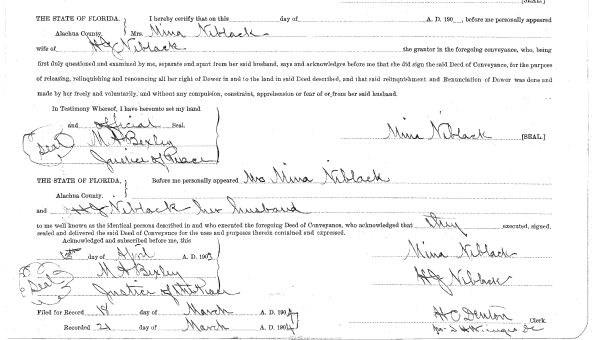 [SEAL]
THE STATE OF FLORIDA. I hereby certify that on this day of A. D. 190 , before me personally appeared
Alachua County. Mrs. Mina Niblack
wife of HJ Niblack the grantor in the foregoing conveyance, who, being
first duly questioned and examined by me, separate and apart from her said husband, says and acknowledges before me that she did sign the said Deed of Conveyance, for the purpose
of releasing, relinquishing and renouncing all her right of Dower in and to the land in said Deed described, and that said relinquishment and Renunciation of Dower was done and
made by her freely and voluntarily, and without any compulsion, constraint, apprehension or fear of or from her said husband.
In Testimony Whereof, I have hereunto set my hand
and official Seal.
Seal M A Bexley Mina Niblack [SEAL.]
Justice of Peace
THE STATE OF FLORIDA. Before me personally appeared Mrs Mina Niblack
Alachua County.
and HJ Niblack her husband
to me well known as the identical persons described in and who executed the foregoing Deed of Conveyance, who acknowledged that they executed, signed,
sealed and delivered the said Deed of Conveyance for the uses and purposes therein contained and expressed.
Acknowledged and subscribed before me, this
day of April A. D. 190 Mina Niblack
Seal M A Bexley HJ Niblack
Justice of the Peace
Filed for Record 18 day of March A. D. 1904 HC Denton Clerk.
Recorded 21 day of March A. D. 1904